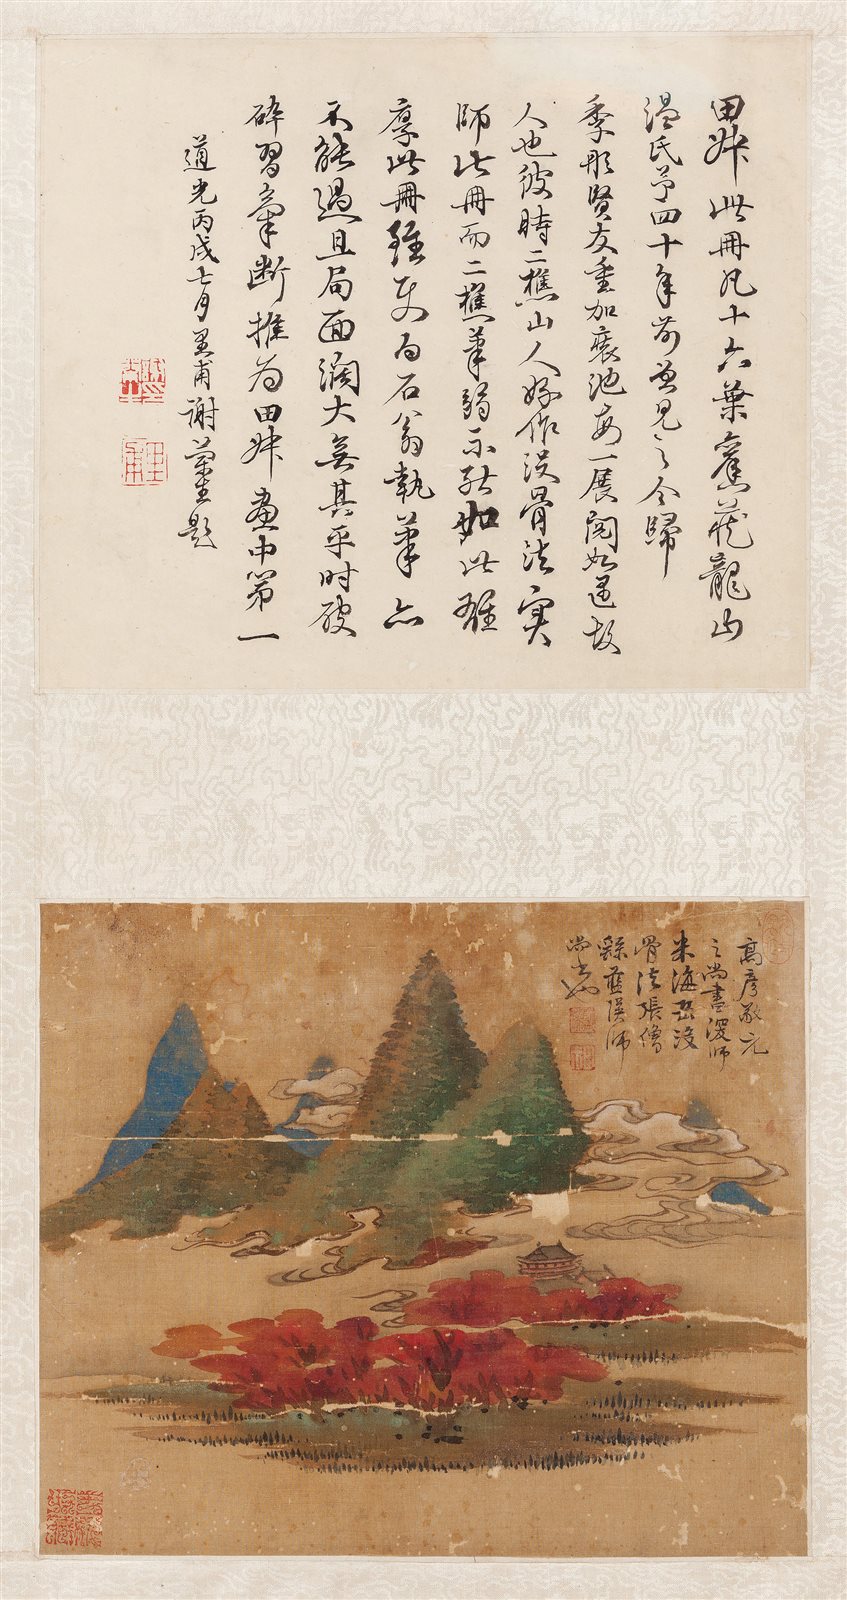 田叔此冊凡十六葉舊藏龍山
溫氏予四十年前曾見之今歸
季彤賢友重加裝池每一展閱如遇故
人也彼時二樵山人好作沒骨法實
師此冊而二樵筆弱不能如此雄
厚此冊雖使白石翁執筆亦
不能過且局面濶大無其平時破
碎習氣斷推為田叔畫中第一
道光丙戌七月里甫謝蘭生題
高彥敬元
之尚書深師
米海岳沒
骨法張僧
繇藍瑛師
尚書